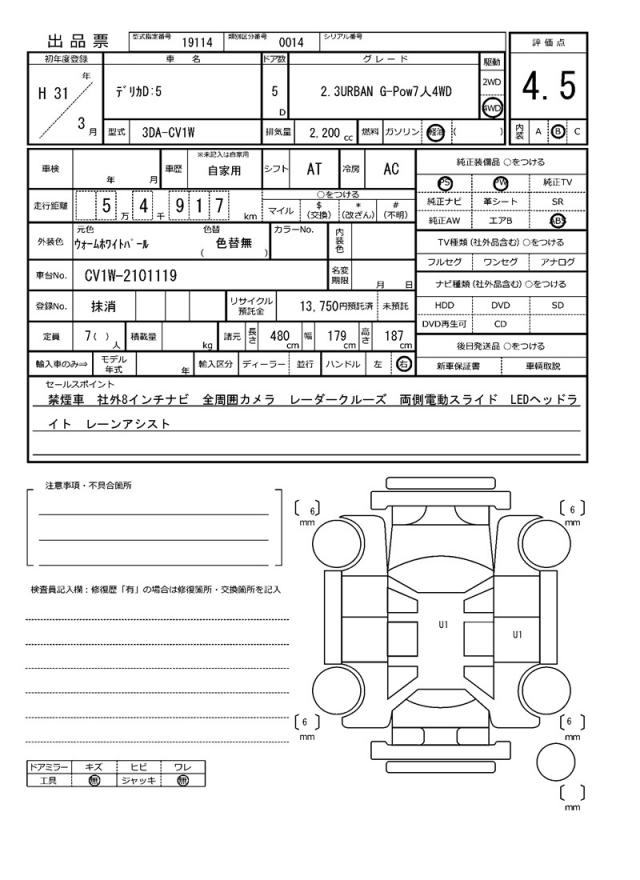 出品票 型式指定番号 19114 類別区分番号 0014 シリアル番号
初年度登録 車名 ドア数 グレード 駆動 評価点
H 31 年 3 月
デリカD:5 5 D 2.3URBAN G-Pow7人4WD 2WD 4WD 4.5
型式 3DA-CV1W 排気量 2,200 cc 燃料 ガソリン 軽油 ( ) 内装 A B C
車検 年 月 車歴 ※未記入は自家用 自家用 シフト AT 冷房 AC 純正装備品 ○をつける
PS PW 純正TV
走行距離 5 万 4 千 9 1 7 km ○をつける
マイル $ (交換) * (改ざん) # (不明)
純正ナビ 革シート SR
純正AW エアB ABS
外装色 元色 ウォームホワイトパール 色替 色替無 ( ) カラーNo. 内装色
TV種類 (社外品含む) ○をつける
フルセグ ワンセグ アナログ
車台No. CV1W-2101119 名変期限 月 日
ナビ種類 (社外品含む) ○をつける
登録No. 抹消 リサイクル預託金 13,750円預託済 未預託
HDD DVD SD
DVD再生可 CD
定員 7( ) 人 積載量 kg 諸元 長さ 480 cm 幅 179 cm 高さ 187 cm
後日発送品 ○をつける
輸入車のみ⇒ モデル年式 年 輸入区分 ディーラー 並行 ハンドル 左 右
新車保証書 車輌取説
セールスポイント
禁煙車 社外8インチナビ 全周囲カメラ レーダークルーズ 両側電動スライド LEDヘッドラ
イト レーンアシスト
注意事項・不具合箇所
検査員記入欄：修復歴「有」の場合は修復箇所・交換箇所を記入
〔 6 〕 mm
〔 6 〕 mm
U1
U1
〔 6 〕 mm
〔 6 〕 mm
〔 〕 mm
ドアミラー キズ ヒビ ワレ
工具 無 ジャッキ 無